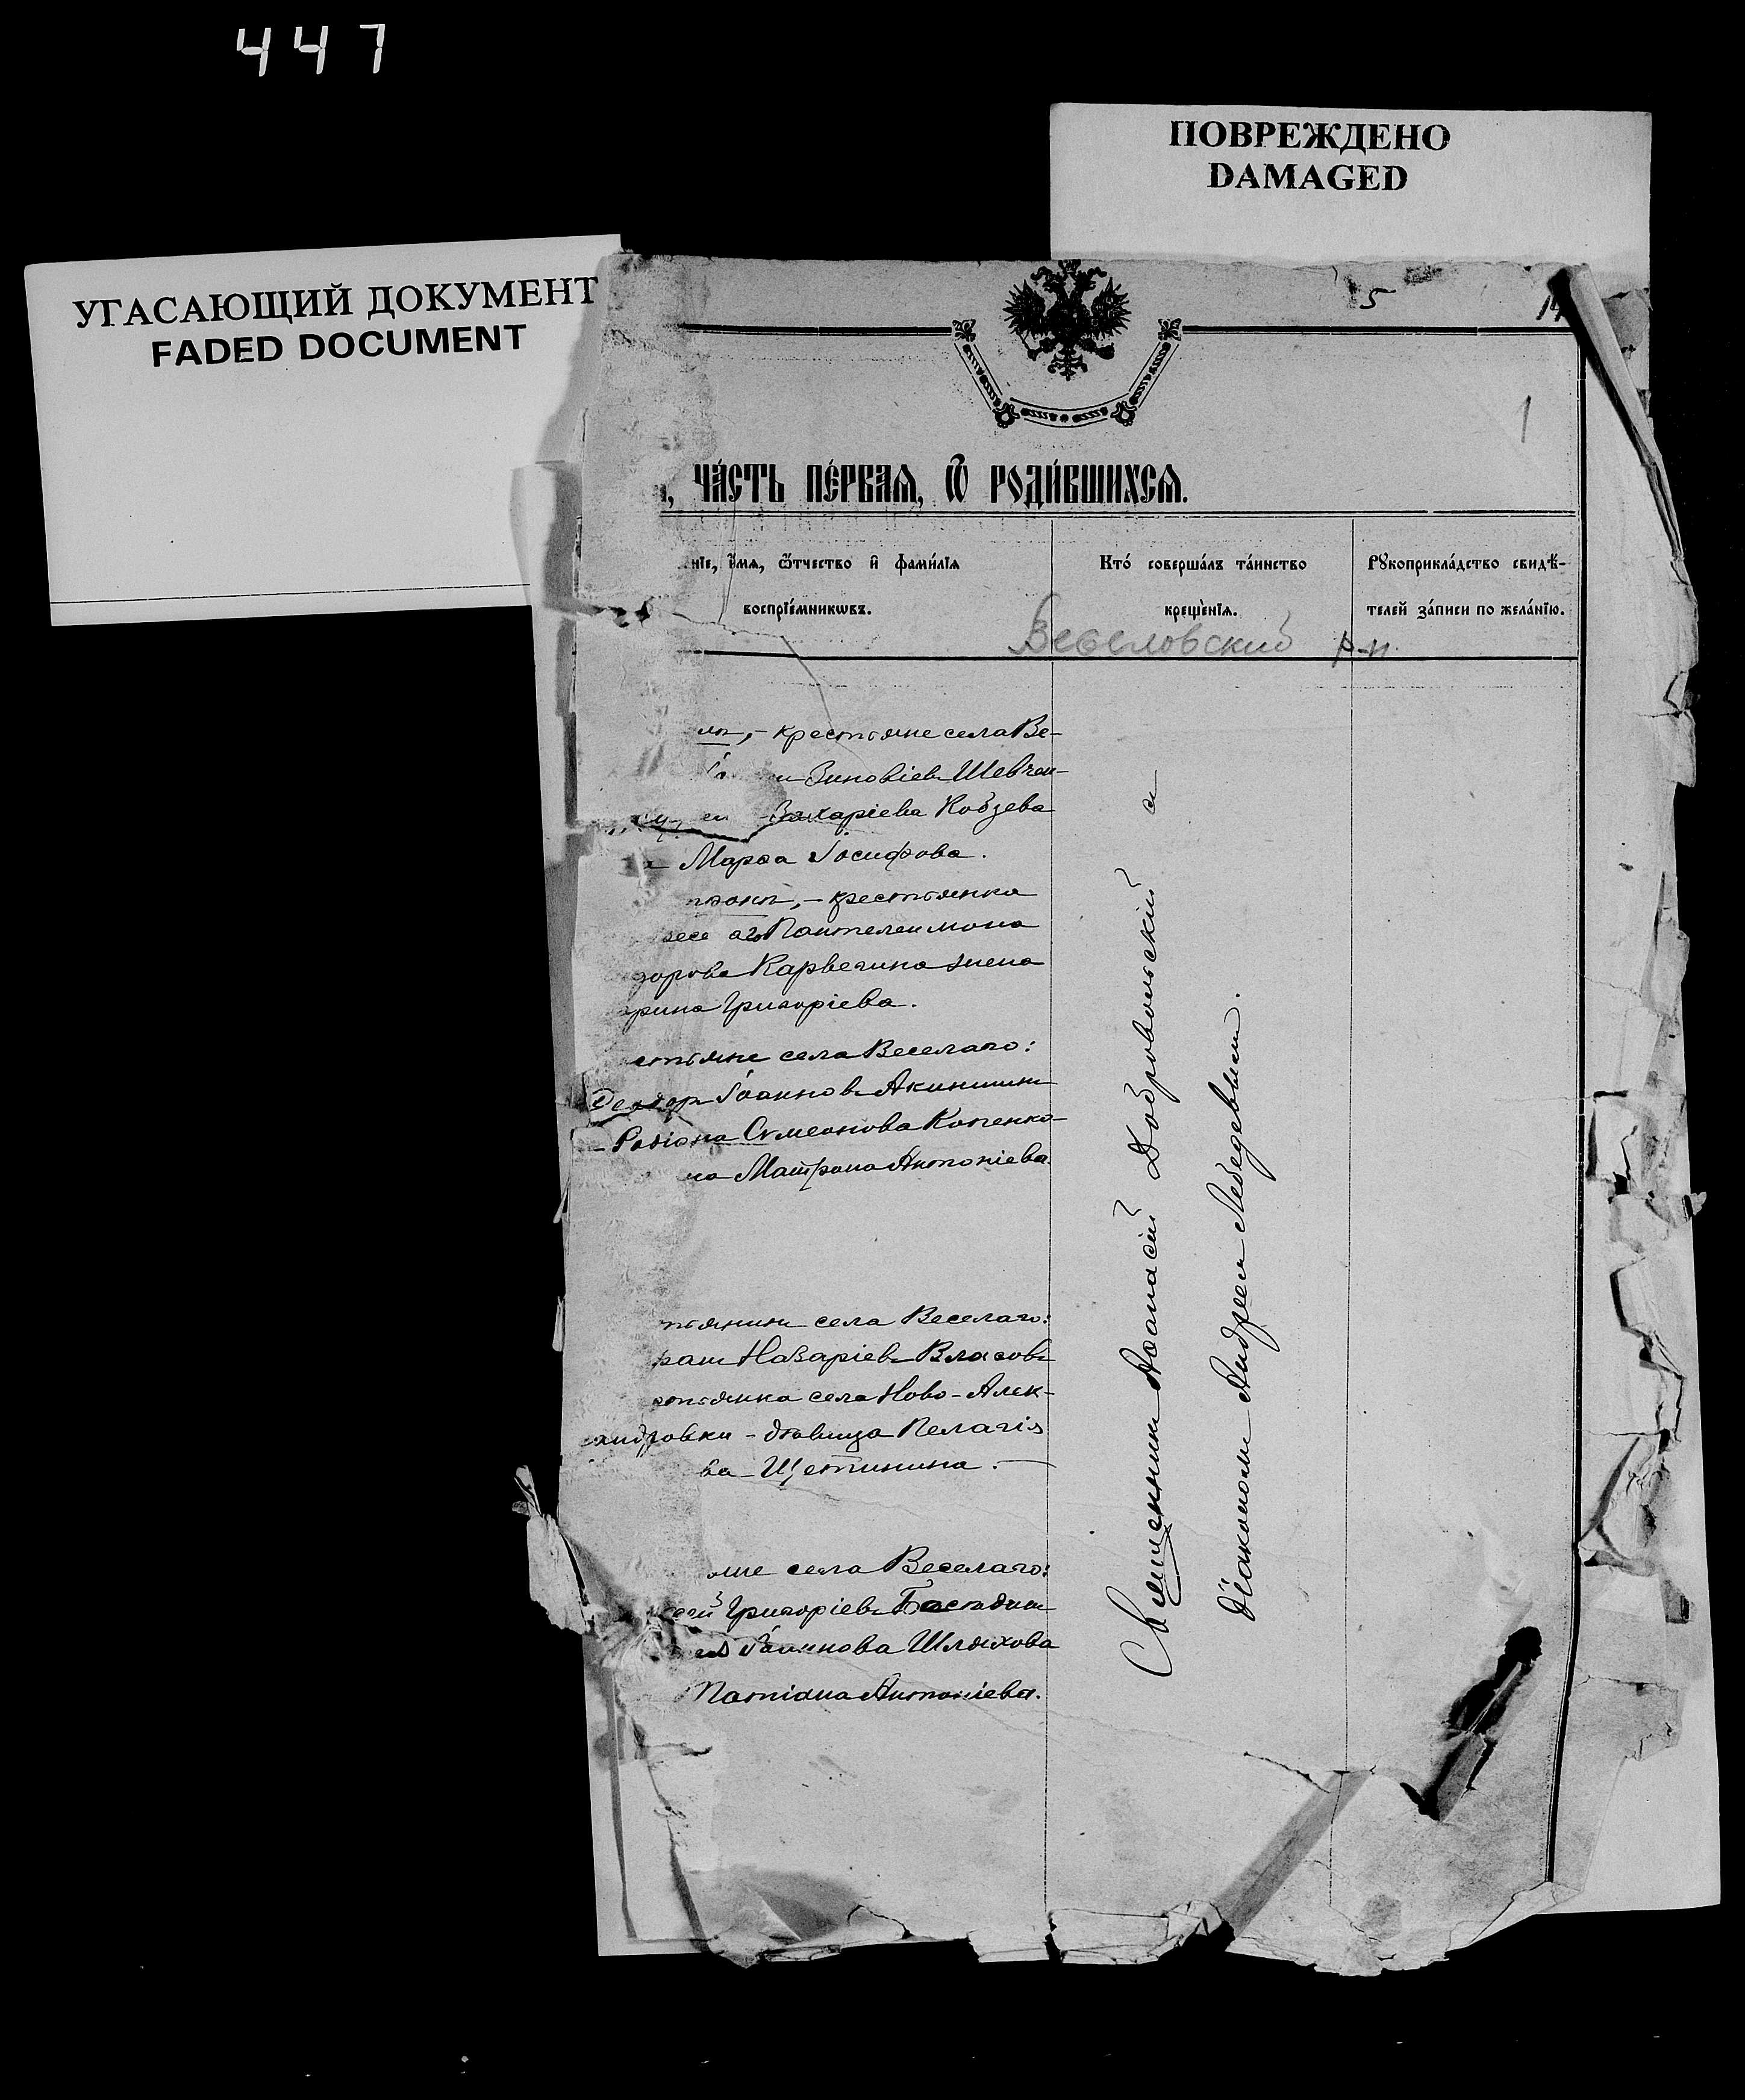 447
ПОВРЕЖДЕНО
DAMAGED
УГАСАЮЩИЙ ДОКУМЕНТ
FADED DOCUMENT
5
14
1
, ЧА́СТЬ ПЕ́РВАѦ, Ѿ РОДИ́ВШИХСѦ.
нїе, и҆́мѧ, ѻ҆́тчество и҆ фами́лїѧ
воспрїе́мникѡвъ.
Кто́ соверша́лъ та́инство
креще́нїѧ.
Рꙋкоприкла́дство свидѣ́-
телей за́писи по жела́нїю.
Веселовский р-н.
крестьяне села Ве-
Зиновіевъ Шевчен-
Захаріева Кобзева
Марѳа Іосифова.
крестьянка
Пантелеимона
дорова Карвегина жена
рина Григоріева.
стьяне села Веселаго:
Ѳеодоръ Іоанновъ Акиншинъ
Родіона Симеонова Копенко-
на Матрона Антоніева
тьянинъ села Веселаго:
Назаріевъ Власовъ
стьянка села Ново-Алек-
сандровки - дѣвица Пелагія
ва Щетинина.
яне села Веселаго:
сѣй Григоріевъ
Іоаннова Шляхова
Татіана Антоніева.
Священникъ Аѳанасій Добровольскій с
Діакономъ Андреемъ Лебедевымъ.